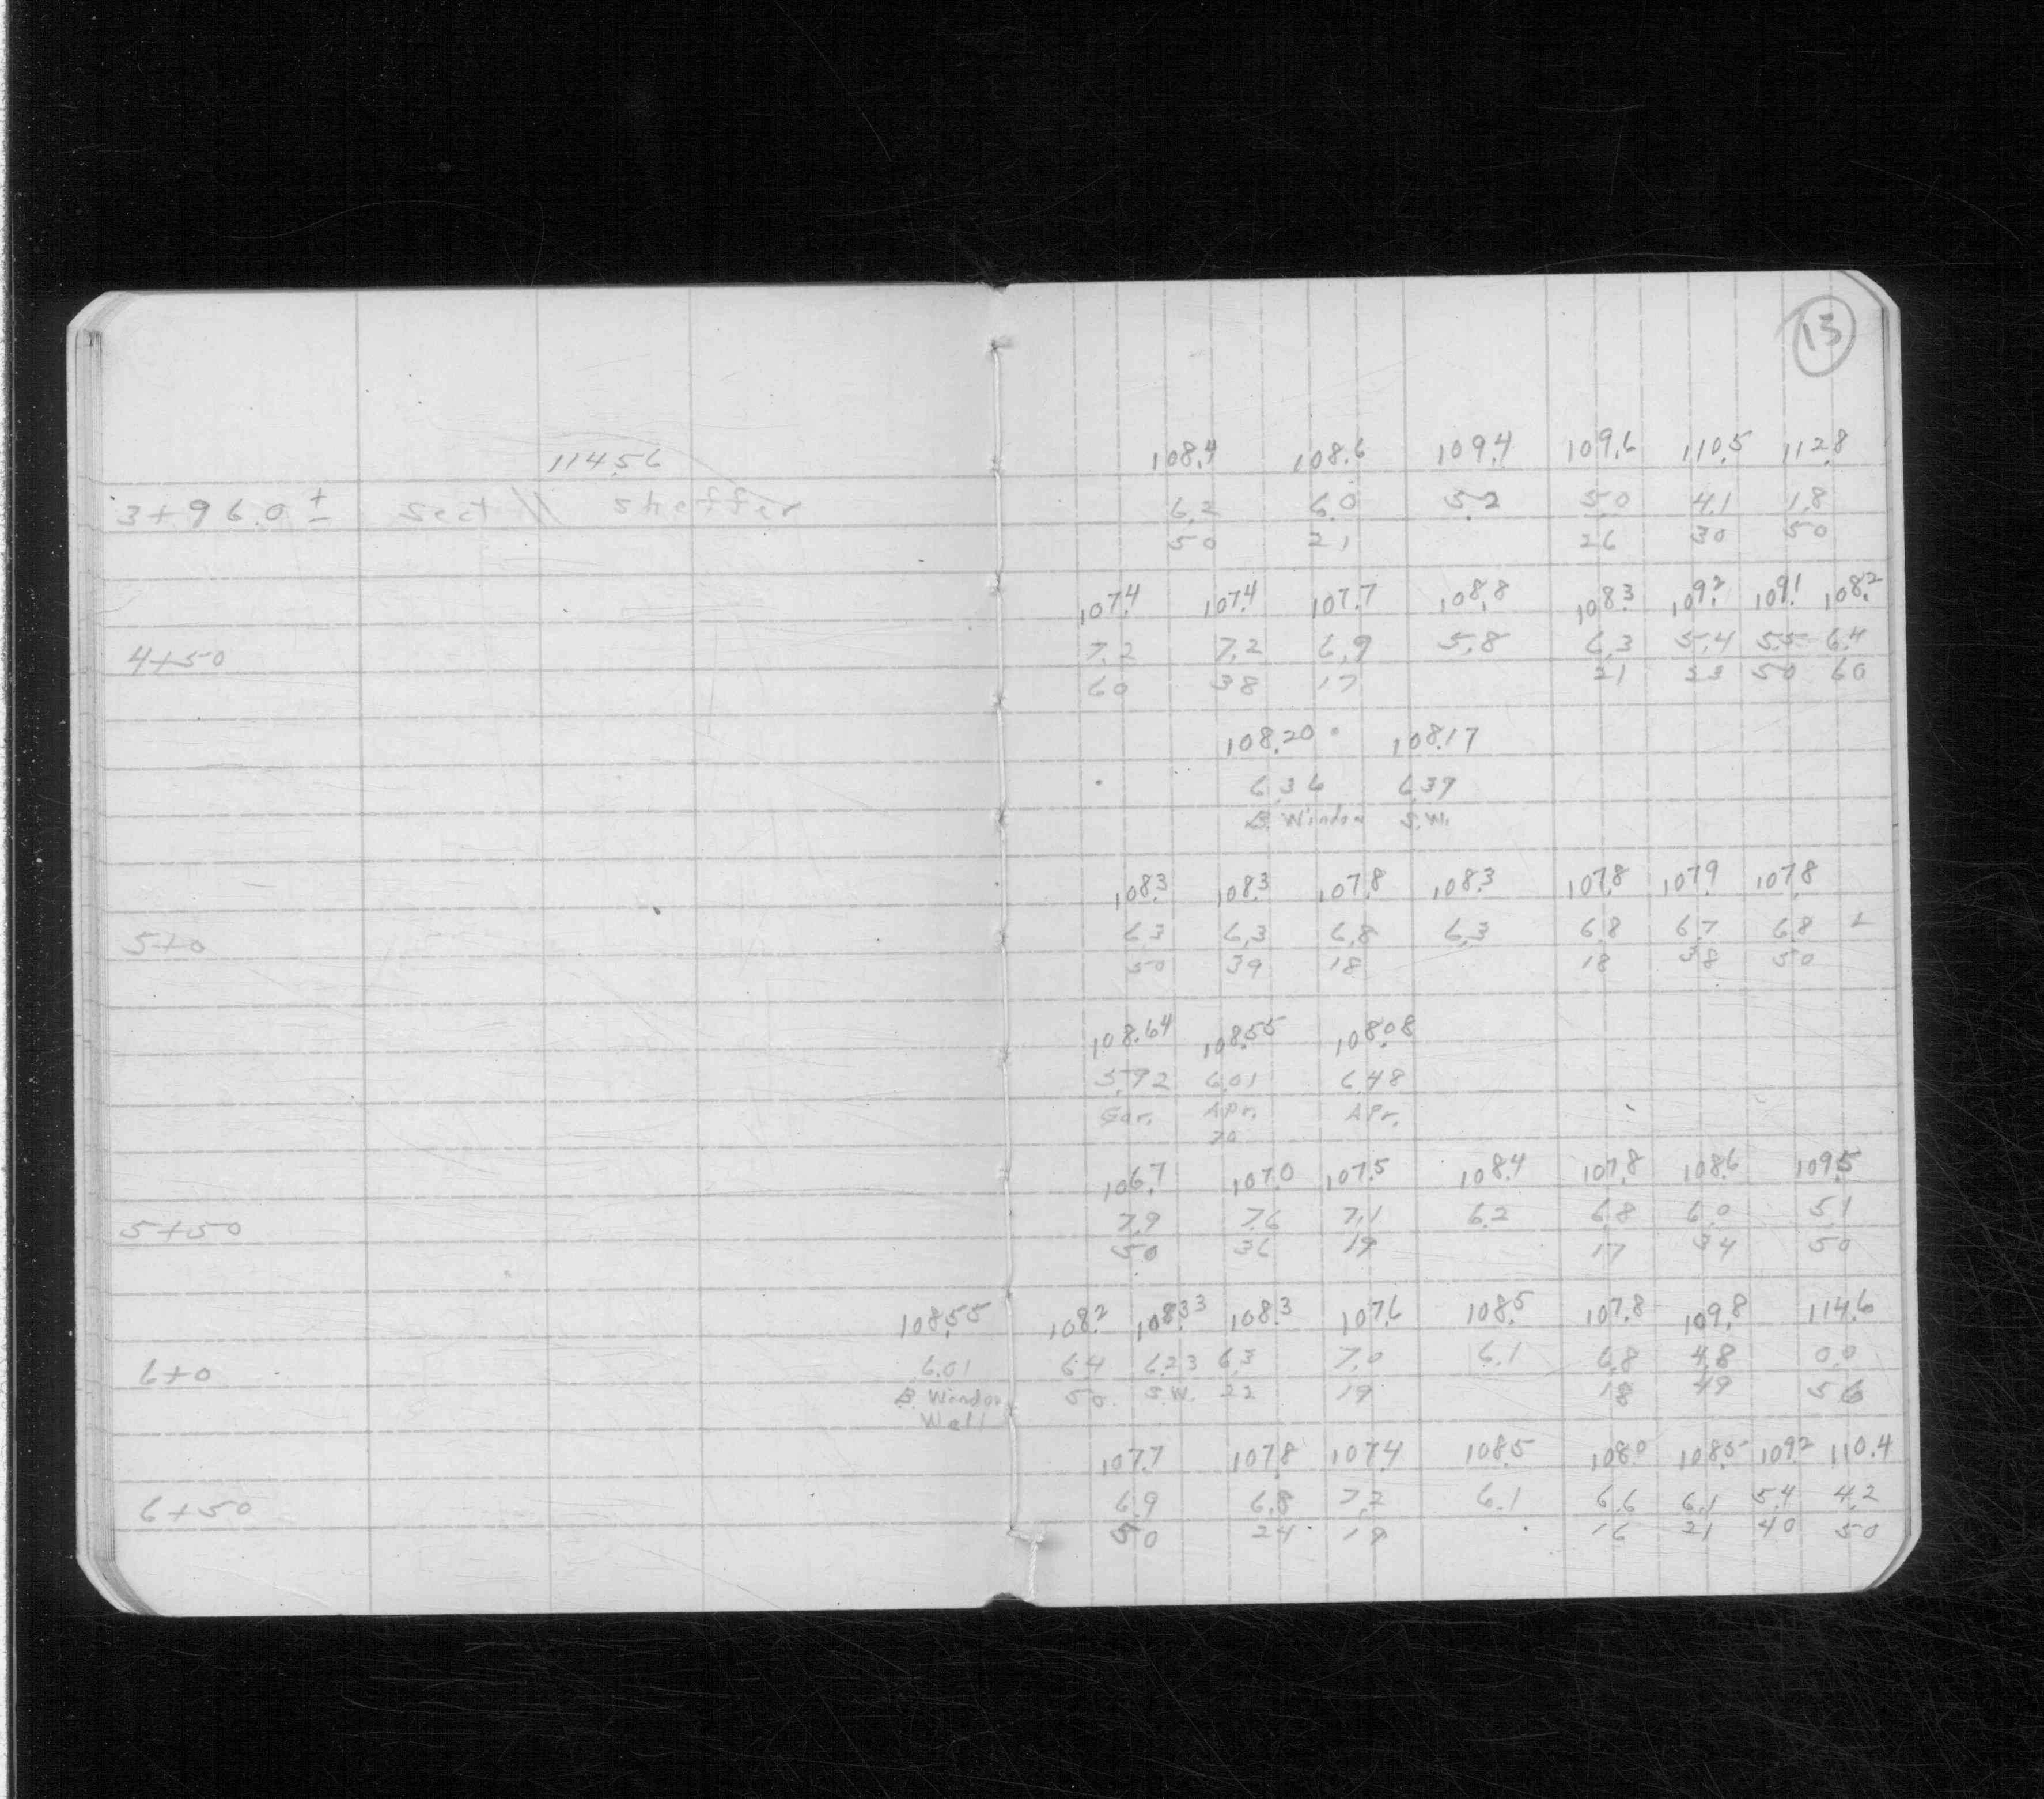 13
114.56 108.4 108.6 109.4 109.6 110.5 112.8
3+96.0± Sect // Sheffer 6.2 6.0 5.2 5.0 4.1 1.8
50 21 26 30 50
107.4 107.4 107.7 108.8 108.3 109.2 109.1 108.2
4+50 7.2 7.2 6.9 5.8 6.3 5.4 5.5 6.4
60 38 17 21 23 50 60
108.20 108.17
6.36 6.39
B. Window S.W.
108.3 108.3 107.8 108.3 107.8 107.9 107.8
5+0 6.3 6.3 6.8 6.3 6.8 6.7 6.8
50 39 18 18 38 50
108.64 108.55 108.08
5.92 6.01 6.48
Gar. Apr. APr.
20
106.7 107.0 107.5 108.4 107.8 108.6 109.5
5+50 7.9 7.6 7.1 6.2 6.8 6.0 5.1
50 36 19 17 34 50
108.55 108.2 108.33 108.3 107.6 108.5 107.8 109.8 114.6
6+0 6.01 6.4 6.23 6.3 7.0 6.1 6.8 4.8 0.0
B. Window 50 S.W. 22 19 18 49 56
Wall
107.7 107.8 107.4 108.5 108.0 108.5 109.2 110.4
6+50 6.9 6.8 7.2 6.1 6.6 6.1 5.4 4.2
50 24 19 16 21 40 50